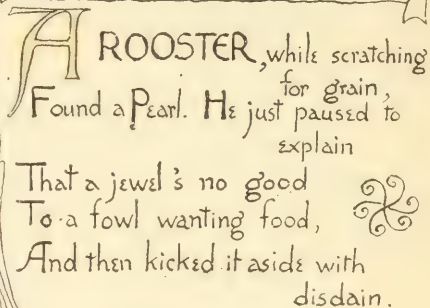 A ROOSTER, while scratching
for grain,
Found a Pearl. He just paused to
explain
That a jewel's no good
To a fowl wanting food,
And then kicked it aside with
disdain.